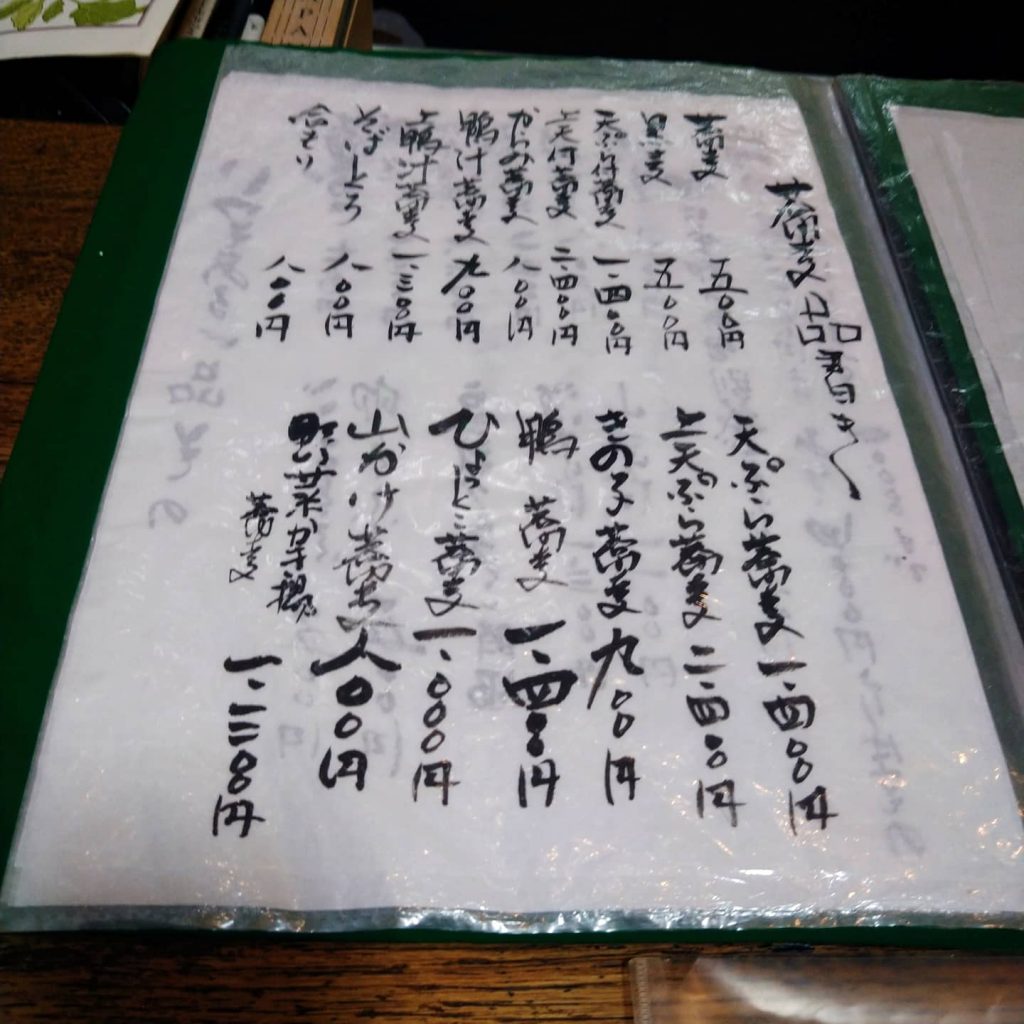 蕎麦品書き
蕎麦 五〇〇円
五〇〇円
天ぷら付蕎麦 一、四〇〇円
上天付蕎麦 二、四〇〇円
からみ蕎麦 八〇〇円
鴨汁蕎麦 九〇〇円
上鴨汁蕎麦 一、三〇〇円
そばとろ 八〇〇円
合もり 八〇〇円
天ぷら蕎麦 一、四〇〇円
上天ぷら蕎麦 二、四〇〇円
きのこ蕎麦 九〇〇円
鴨 蕎麦 一、四〇〇円
ひょっとこ蕎麦 一、〇〇〇円
山かけ蕎麦 八〇〇円
野菜かき揚
蕎麦 一、三〇〇円